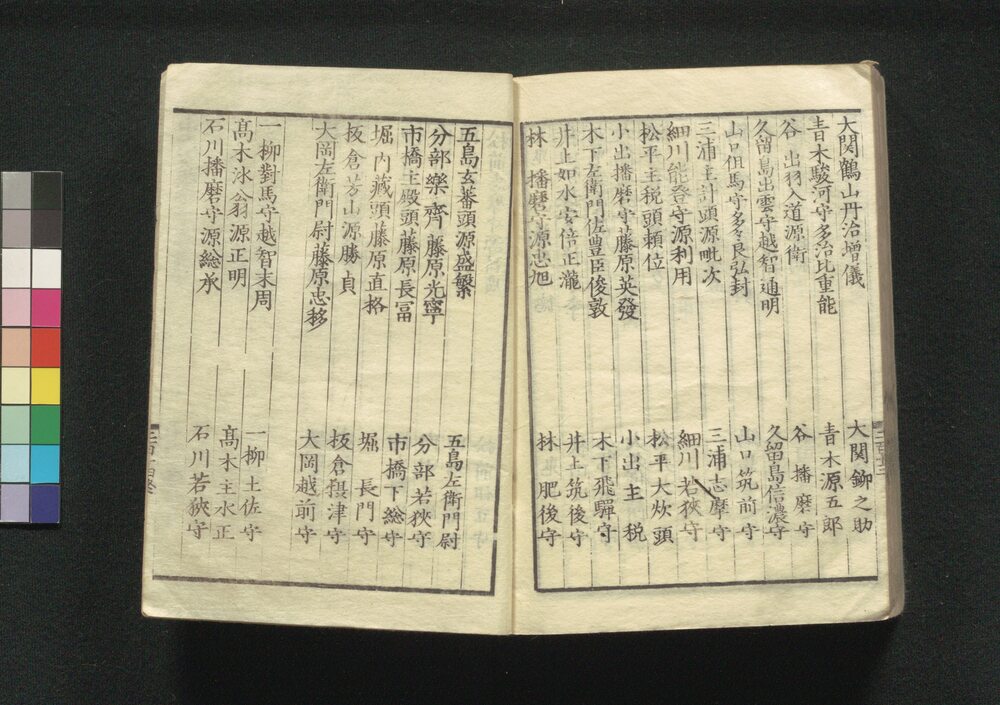 大関鶴山丹治增儀 大関鉚之助
青木駿河守多治比重能 青木源五郎
谷 出羽入道源衛 谷 播磨守
久留島出雲守越智通明 久留島信濃守
山口但馬守多々良弘封 山口筑前守
三浦主計頭源毗次 三浦志摩守
細川能登守源利用 細川若狹守
松平主税頭頼位 松平大炊頭
小出播磨守藤原英發 小出主税
木下左衛門佐豊臣俊敦 木下飛驒守
井上如水安倍正瀧 井上筑後守
林 播磨守源忠旭 林 肥後守
五島玄蕃頭源盛繁 五島左衛門尉
分部樂齊藤原光寧 分部若狹守
市橋主殿頭藤原長冨 市橋下総守
堀内藏頭藤原直格 堀 長門守
板倉芳山源勝貞 板倉摂津守
大岡左衛門尉藤原忠移 大岡越前守
一柳對馬守越智末周 一柳土佐守
髙木泳翁源正明 髙木主水正
石川播磨守源総承 石川若狹守